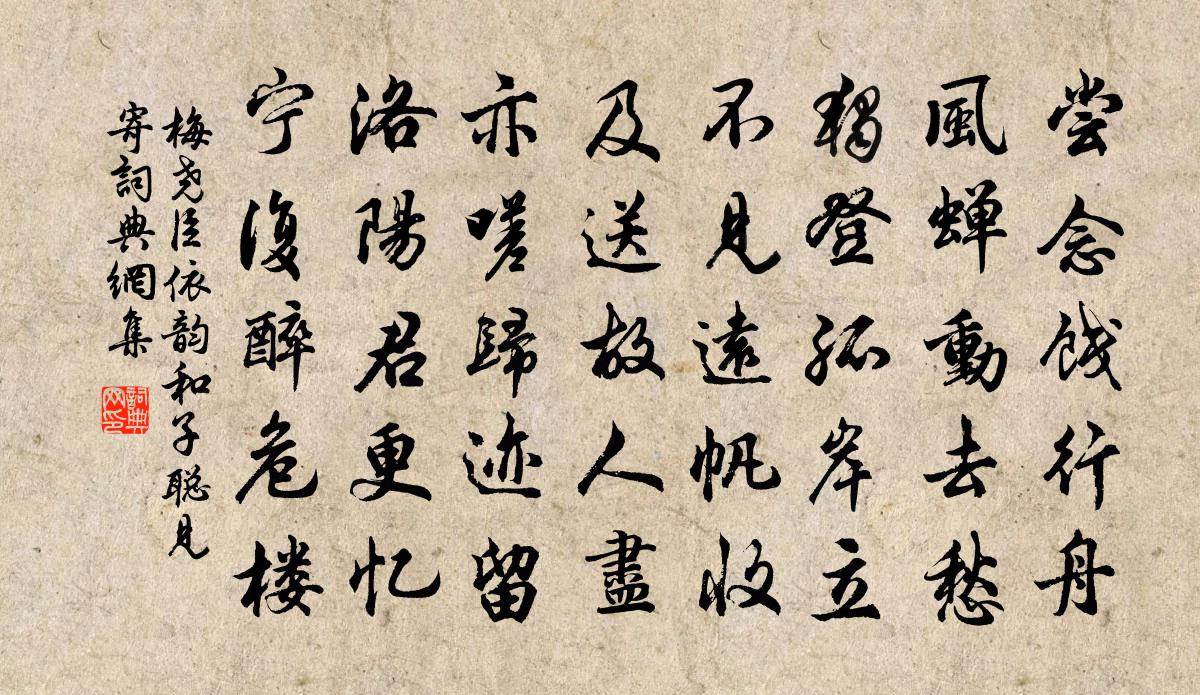 尝念饯行舟
風蝉動去愁
獨登孤岸立
不見遠帆收
及送故人盡
亦嗟歸迹留
洛陽君更忆
宁復醉危楼
梅尧臣依韵和子聪見
寄詞典網集
詞典
网印